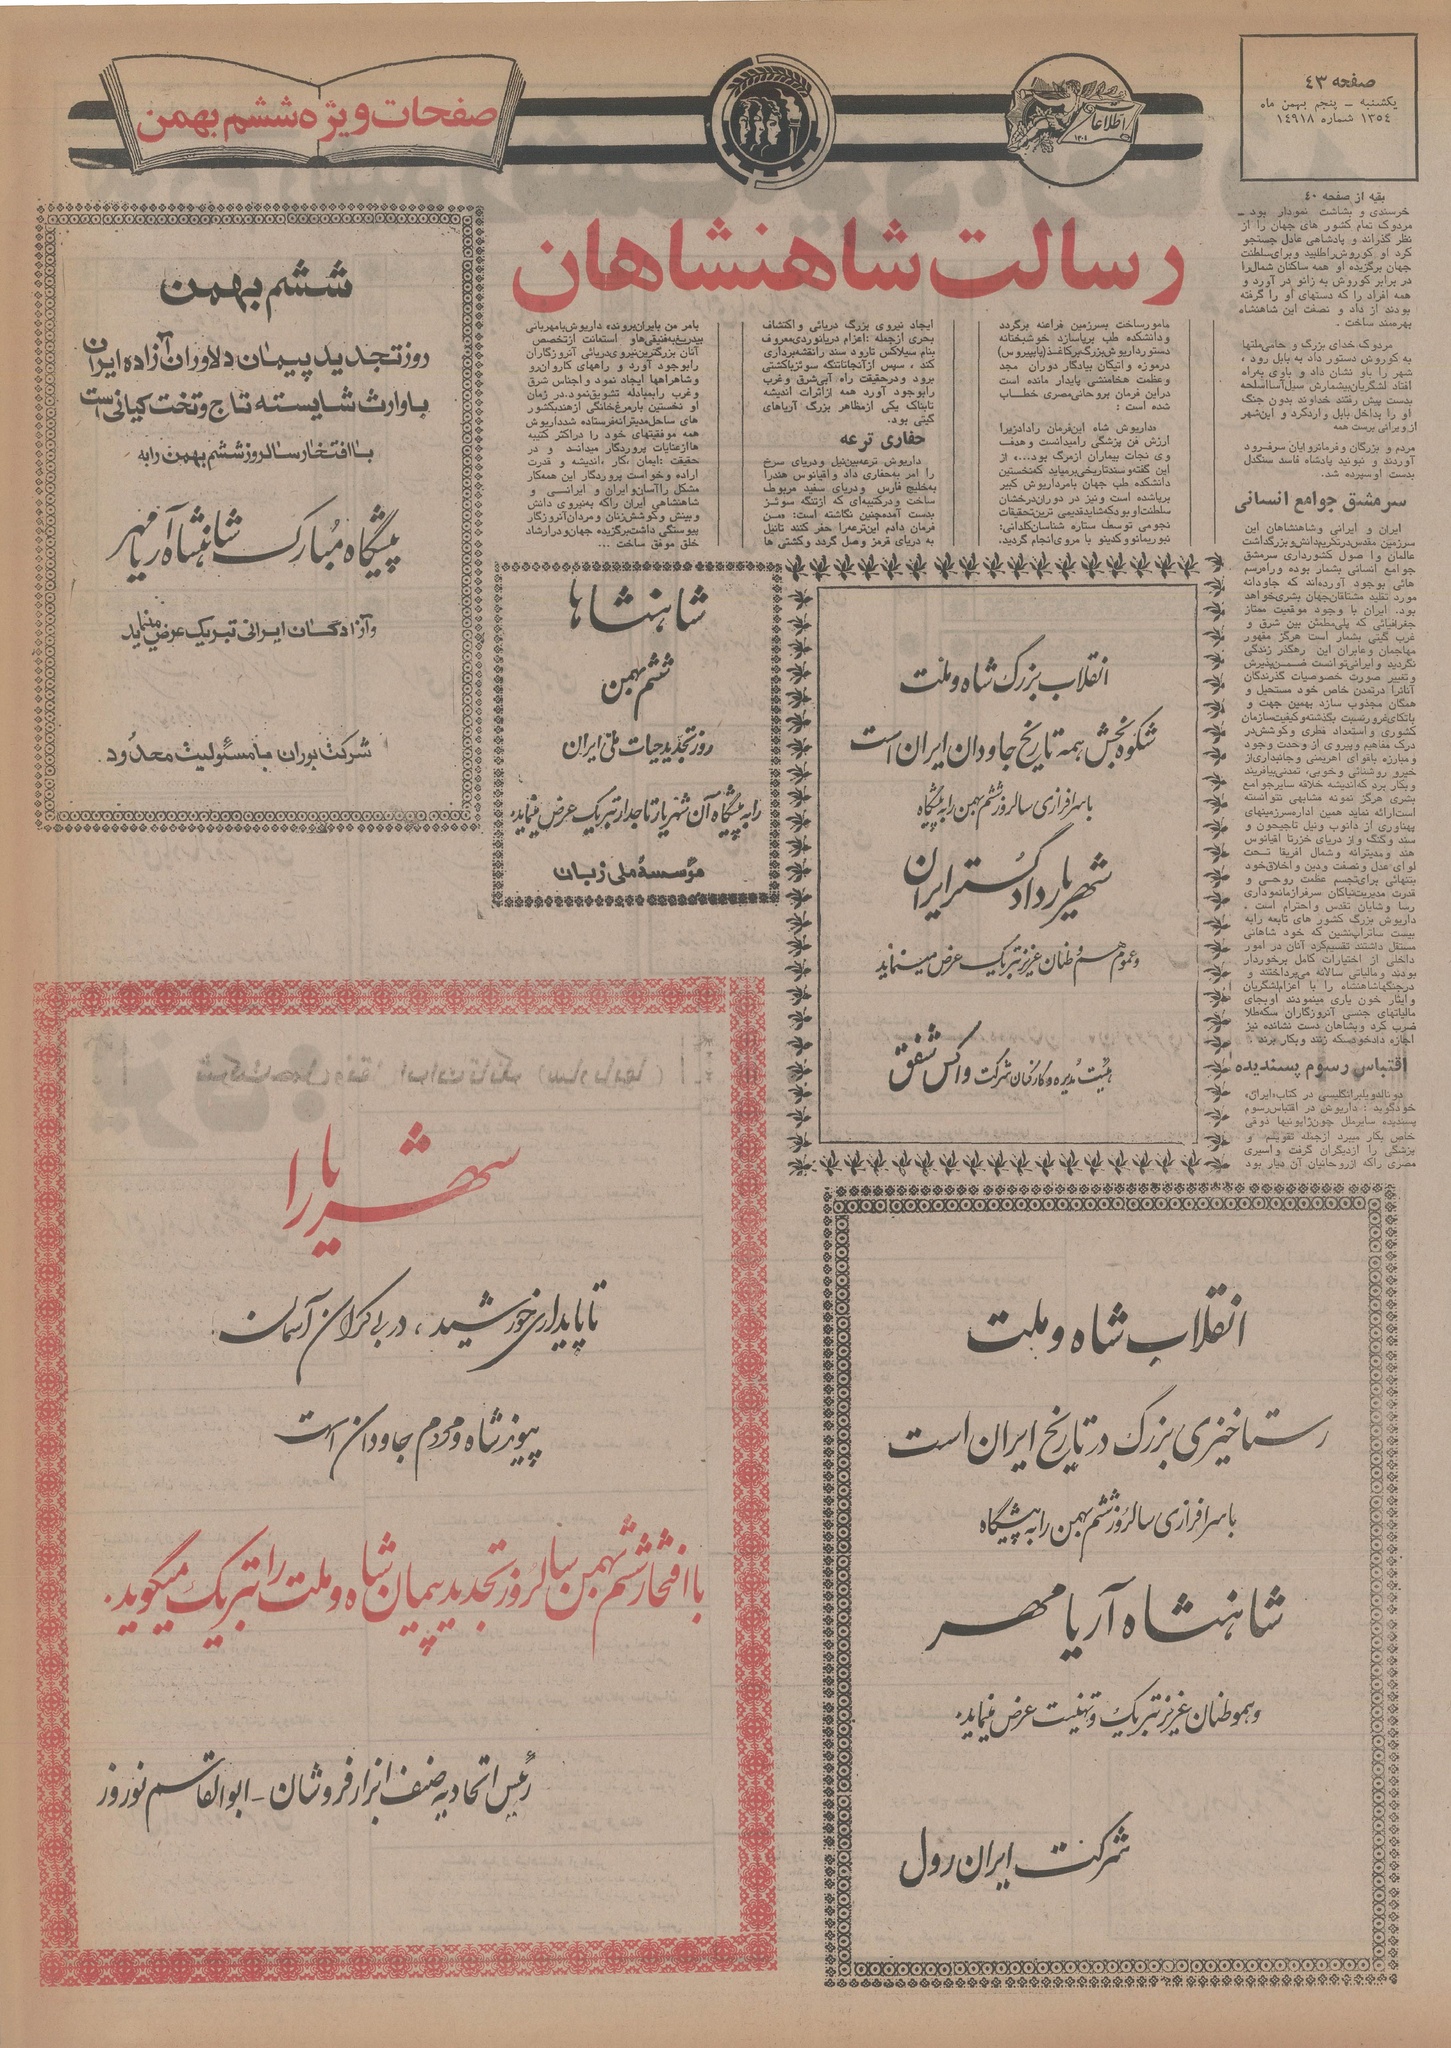 صفحه ۴۳
یکشنبه ـ پنجم بهمن ماه
۱۳۵۴ شماره ۱۴۹۱۸
اطلاعات
صفحات ویژه ششم بهمن
رسالت شاهنشاهان
بقیه از صفحه ۴۰
خرسندی و بشاشت نمودار بود ـ
مردوک تمام کشور های جهان را از
نظر گذراند و پادشاهی عادل جستجو
کرد او کوروش را طلبید و برای سلطنت
جهان برگزیده او همه ساکنان شمال را
در برابر کوروش به زانو در آورد و
همه افراد را که دستهای او را گرفته
بودند از داد و نصفت این شاهنشاه
بهرمند ساخت .
مردوک خدای بزرگ و حامی ملتها
به کوروش دستور داد به بابل رود ،
شهر را باو نشان داد و باوی به راه
افتاد لشگریان بیشمارش سیل آسا اسلحه
بدست پیش رفتند خداوند بدون جنگ
او را بداخل بابل وارد کرد و این شهر
از ویرانی برست همه
مردم و بزرگان و فرمانروایان سرفرود
آوردند و نبونید پادشاه فاسد سنگدل
بدست او سپرده شد.
سرمشق جوامع انسانی
ایران و ایرانی و شاهنشاهان این
سرزمین مقدس در تکریم دانش و بزرگداشت
عالمان و اصول کشورداری سرمشق
جوامع انسانی بشمار بوده و راه و رسم
هائی بوجود آورده‌اند که جاودانه
مورد تقلید مشتاقان جهان بشری خواهد
بود. ایران با وجود موقعیت ممتاز
جغرافیائی که پلی مطمئن بین شرق و
غرب گیتی بشمار است هرگز مقهور
مهاجمان و عابران این رهگذر زندگی
نگردید و ایرانی توانست ضمن پذیرش
و تغییر صورت خصوصیات گذرندگان
آنانرا در تمدن خاص خود مستحیل و
همگان مجذوب سازد بهمین جهت و
باتکای غرور نسبت بگذشته و کیفیت سازمان
کشوری و استعداد فطری و کوشش در
درک مفاهیم و پیروی از وحدت وجود
و مبارزه با قوای اهریمنی و جانبداری از
خیر و روشنائی و خوبی، تمدنی بنیاد بنهد
و بکار برد که اندیشه خلاقه سایر جوامع
بشری هرگز نمونه مشابهی نتوانسته
است ارائه نماید همین اداره سرزمینهای
پهناوری از دانوب و نیل تا جیحون و
سند و گنگ و از دریای خزر تا اقیانوس
هند و مدیترانه و شمال آفریقا تحت
لوای عدل و نصفت و دین و اخلاق خود
بتنهائی برای تجسم عظمت روحی و
قدرت مدیریت نیاکان سرفراز ما نموداری
رسا و شایان تقدس و احترام است .
داریوش بزرگ کشور های تابعه را به
بیست ساتراپ نشین که خود شاهانی
مستقل داشتند تقسیم کرد آنان در امور
داخلی از اختیارات کامل برخوردار
بودند و مالیاتی سالانه می‌پرداختند و
در جنگها شاهنشاه را با اعزام لشگریان
و ایثار خون یاری مینمودند او بجای
مالیاتهای جنسی آنروزگاران سکه طلا
ضرب کرد و بشاهان دست نشانده نیز
اجازه داد خود سکه زنند و بکار برند .
اقتباس رسوم پسندیده
دونالد ویلبر انگلیسی در کتاب «ایران»
خود گوید : داریوش در اقتباس رسوم
پسندیده سایر ملل چون ژاپونیها ذوقی
خاص بکار میبرد از جمله تقویم و
پزشکی را از دیگران گرفت و اسیری
مصری را که از روحانیان آن دیار بود
مامور ساخت بسرزمین فراعنه برگردد
و دانشکده طب برپا سازد خوشبختانه
دستور داریوش بزرگ بر کاغذ (پاپیروس)
در موزه واتیکان بیادگار دوران مجد
و عظمت هخامنشی پایدار مانده است
در این فرمان بروحانی مصری خطاب
شده است :
«داریوش شاه این فرمان را داد زیرا
ارزش فن پزشکی را میدانست و هدف
وی نجات بیماران از مرگ بود...» از
این گفته و سند تاریخی برمیاید که نخستین
دانشکده طب جهان بامر داریوش کبیر
برپا شده است و نیز در دوران درخشان
سلطنت او بود که شاید قدیمی ترین تحقیقات
نجومی توسط ستاره شناسان کلدانی:
نبوریمانو و کدینو با مروی انجام گردید.
ایجاد نیروی بزرگ دریائی و اکتشاف
بحری از جمله : اعزام دریانوردی معروف
بنام سیلاکس تا رود سند را نقشه برداری
کند ، سپس از آنجا تا تنگه سوئز با کشتی
برود و در حقیقت راه آبی شرق و غرب
را بوجود آورد همه از اثرات اندیشه
تابناک یکی از مظاهر بزرگ آریاهای
گیتی بود.
حفاری ترعه
داریوش ترعه بین نیل و دریای سرخ
را امر به حفاری داد و اقیانوس هند را
به خلیج فارس و دریای سفید مربوط
ساخت و در کتیبه‌ای که از تنگه سوئز
بدست آمده چنین نگاشته است: «من
فرمان دادم این ترعه را حفر کنند تا نیل
به دریای قرمز وصل گردد و کشتی ها
بامر من بایران بروند» داریوش با مهربانی
بیدریغ به فنیقی‌ها و استعانت از تخصص
آنان بزرگترین نیروی دریائی آنروزگار
را بوجود آورد و راههای کاروان رو
و شاهراهها ایجاد نمود و اجناس شرق
و غرب را بمبادله تشویق نمود. در زمان
او نخستین بار مرغ خانگی از هند بکشور
های ساحل مدیترانه فرستاده شد داریوش
همه موفقیتهای خود را در اکثر کتیبه
ها از عنایات پروردگار میداند و در
حقیقت : ایمان ، کار ، اندیشه و قدرت
اراده و خواست پروردگار این همه کار
مشکل را آسان و ایران و ایرانی و
شاهنشاهی ایران را که به نیروی دانش
و بینش و کوشش زنان و مردان آنروزگار
پیوستگی داشت برگزیده جهان و در ارشاد
خلق موفق ساخت ...
ششم بهمن
روز تجدید پیمان دلاوران آزاده ایران
با وارث شایسته تاج و تخت کیانی است
با افتخار سالروز ششم بهمن را به
پیشگاه مبارک شاهنشاه آریامهر
و آزادگان ایرانی تبریک عرض مینماید
شرکت بوران با مسئولیت محدود.
شاهنشاها
ششم بهمن
روز تجدید حیات ملی ایران
را به پیشگاه آن شهریار تاجدار تبریک عرض مینماید.
مؤسسه ملی زبان
انقلاب بزرگ شاه و ملت
شکوه بخش همه تاریخ جاودان ایران است
با سرافرازی سالروز ششم بهمن را به پیشگاه
شهریار دادگستر ایران
و عموم هم‌وطنان عزیز تبریک عرض مینماید
هیئت مدیره و کارکنان شرکت واکس شفق
شهریارا
تا پایداری خورشید ، در بی کران آسمان
پیوند شاه و مردم جاودان است
با افتخار ششم بهمن سالروز تجدید پیمان شاه و ملت را تبریک میگوید.
رئیس اتحادیه صنف ابزار فروشان ـ ابوالقاسم نوروز
انقلاب شاه و ملت
رستاخیزی بزرگ در تاریخ ایران است
با سرافرازی سالروز ششم بهمن را به پیشگاه
شاهنشاه آریامهر
و هموطنان عزیز تبریک و تهنیت عرض مینماید.
شرکت ایران رول